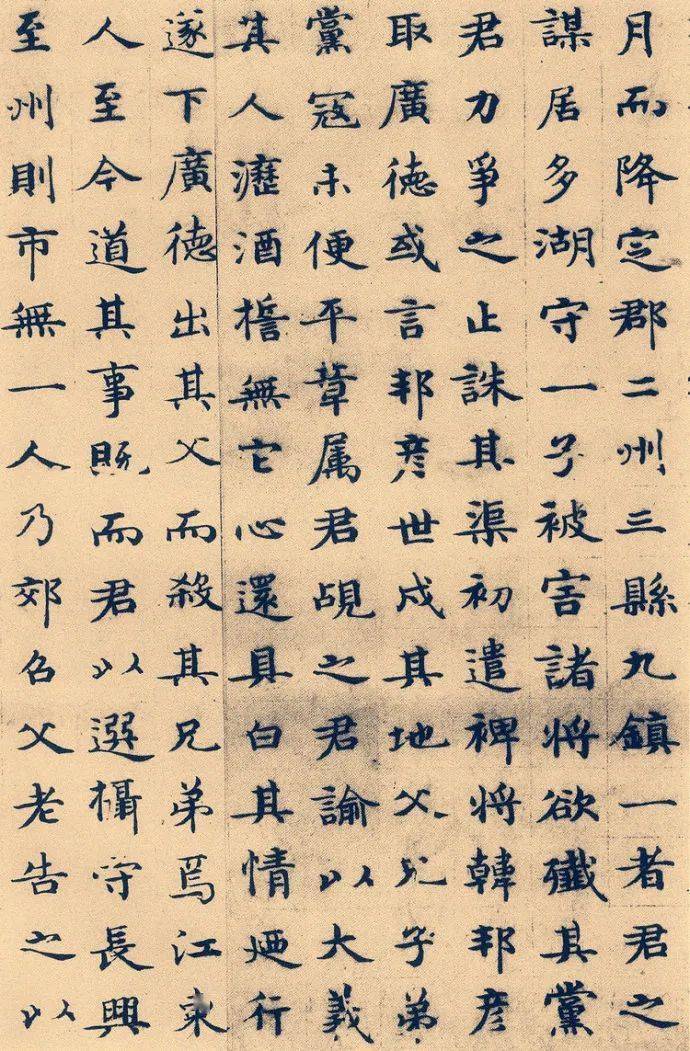 月而降定郡二州三縣九鎮一者君之
謀居多湖守一子被害諸將欲殲其黨
君力爭之止誅其渠初遣裨將韓邦彦
取廣德或言邦彦世戍其地父兄子弟
黨冦未便平章属君覘之君諭以大義
其人瀝酒誓無它心還具白其情廼行
遂下廣德出其父而殺其兄弟焉江東
人至今道其事既而君以選攝守長興
至州則市無一人乃郊召父老告之以